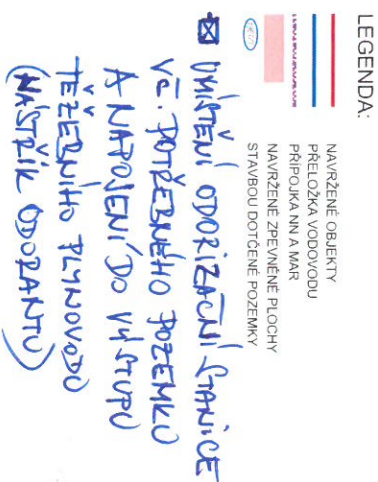 LEGENDA:
NAVRŽENÉ OBJEKTY
PŘELOŽKA VODOVODU
PŘÍPOJKA NN A MAR
NAVRŽENÉ ZPEVNĚNÉ PLOCHY
STAVBOU DOTČENÉ POZEMKY
UMÍSTĚNÍ ODORIZAČNÍ STANICE
VČ. POTŘEBNÉHO POZEMKU
A NAPOJENÍ DO VÝSTUPU
TĚŽEBNÍHO PLYNOVODU
(NÁSTŘIK ODORANTU)